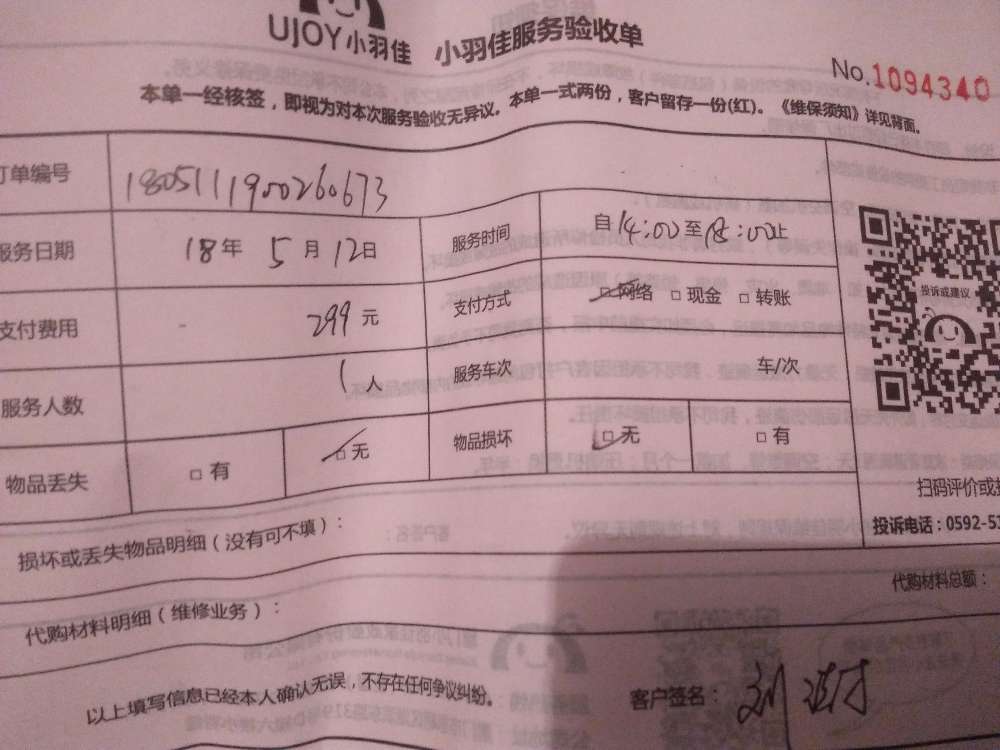 UJOY小羽佳 小羽佳服务验收单
No.1094340
本单一经核签，即视为对本次服务验收无异议。本单一式两份，客户留存一份(红)。《维保须知》详见背面。
订单编号 180511190026067３
服务日期 18年 5月 12日 服务时间 自14:00至18:00止
支付费用 299元 支付方式 □网络 □现金 □转账
投诉或建议
服务人数 1人 服务车次 车/次
物品丢失 □有 □无 物品损坏 □无 □有
扫码评价或
投诉电话：0592-5
损坏或丢失物品明细（没有可不填）：
代购材料明细（维修业务）： 代购材料总额：
以上填写信息已经本人确认无误，不存在任何争议纠纷。 客户签名：刘